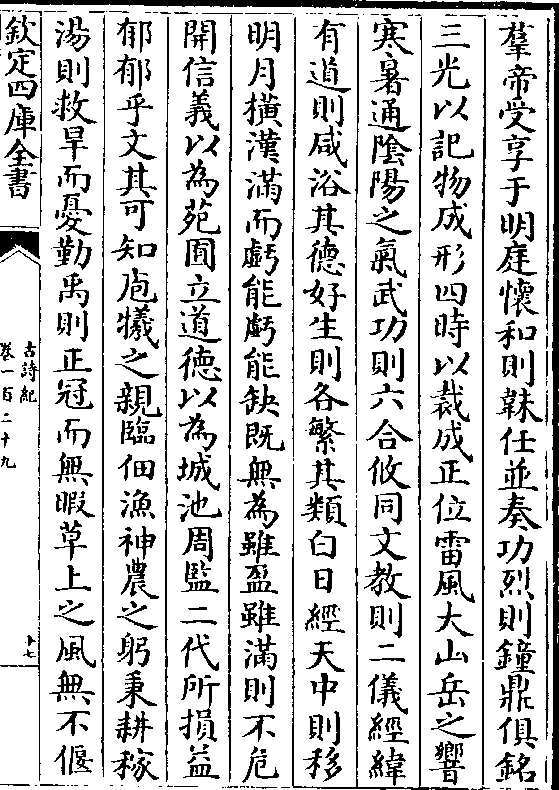 羣帝受享于明庭懷和則韎任並奏功烈則鐘鼎俱銘
三光以記物成形四時以裁成正位雷風大山岳之響
寒暑通隂陽之氣武功則六合攸同文教則二儀經緯
有道則咸浴其德好生則各繁其類白日經天中則移
明月橫漢滿而虧能虧能缺既無為雖盈雖滿則不危
開信義以為苑囿立道德以為城池周監二代所損益
郁郁乎文其可知庖犧之親臨佃漁神農之躬秉耕稼
湯則救旱而憂勤禹則正冠而無暇草上之風無不偃
欽定四庫全書
古詩紀
卷一百二十九
十七